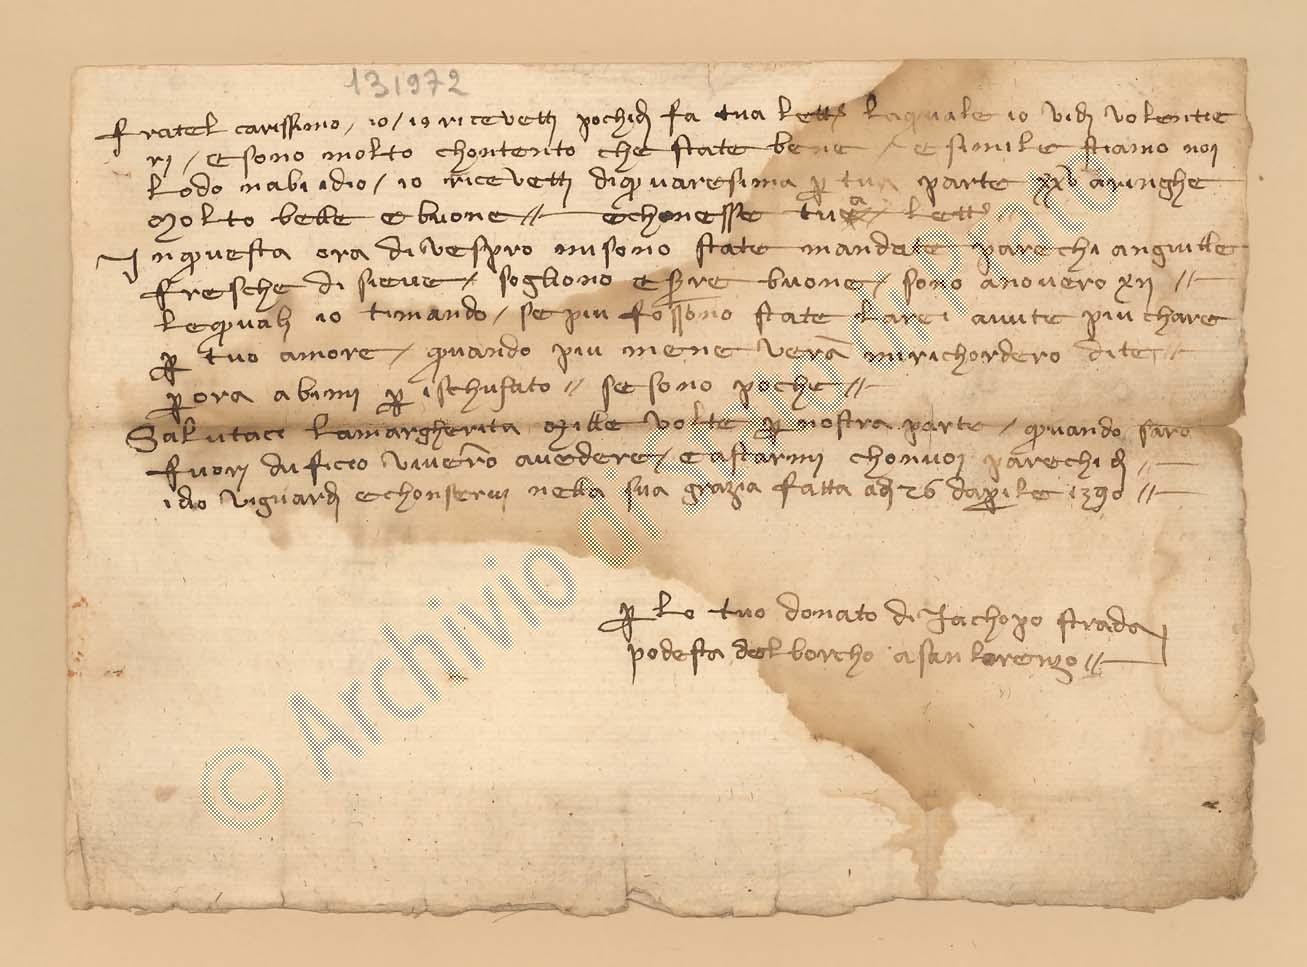 131972
fratel carissimo / io / io ricevetti pochidi fa tua lett͂ laquale io vidi volentie
ri / e sono molto chontento che state bene / e simile stiamo noi
lodo nabi idio / io ricevetti diquaresima ꝑ tua parte xxv aringhe
molto belle e buone // echonesse tua lett͂ //
Inquesta ora divespro misono state mandate parechi anguille
fresche di sieve / sogliono eẜre buone / sono anovero xij //
lequali io timando / se piu fossono state larei avute piu chare
ꝑ tuo amore / quando piu mene verà mirichordero dite //
ꝑ ora abimi ꝑ ischusato // se sono poche //
Salutaci lamargherita mille volte ꝑ nostra parte / quando saro
fuori duficio viverrò avedere / e astarmi chonvoi parechi dj //
idio viguardj echonservj nella sua grazia fatta adj 26 dapꝛile 1390 //
ꝑ lo tuo donato di Jachopo strada
podesta del borcho asanlorenzo //
© Archivio di Stato di Prato